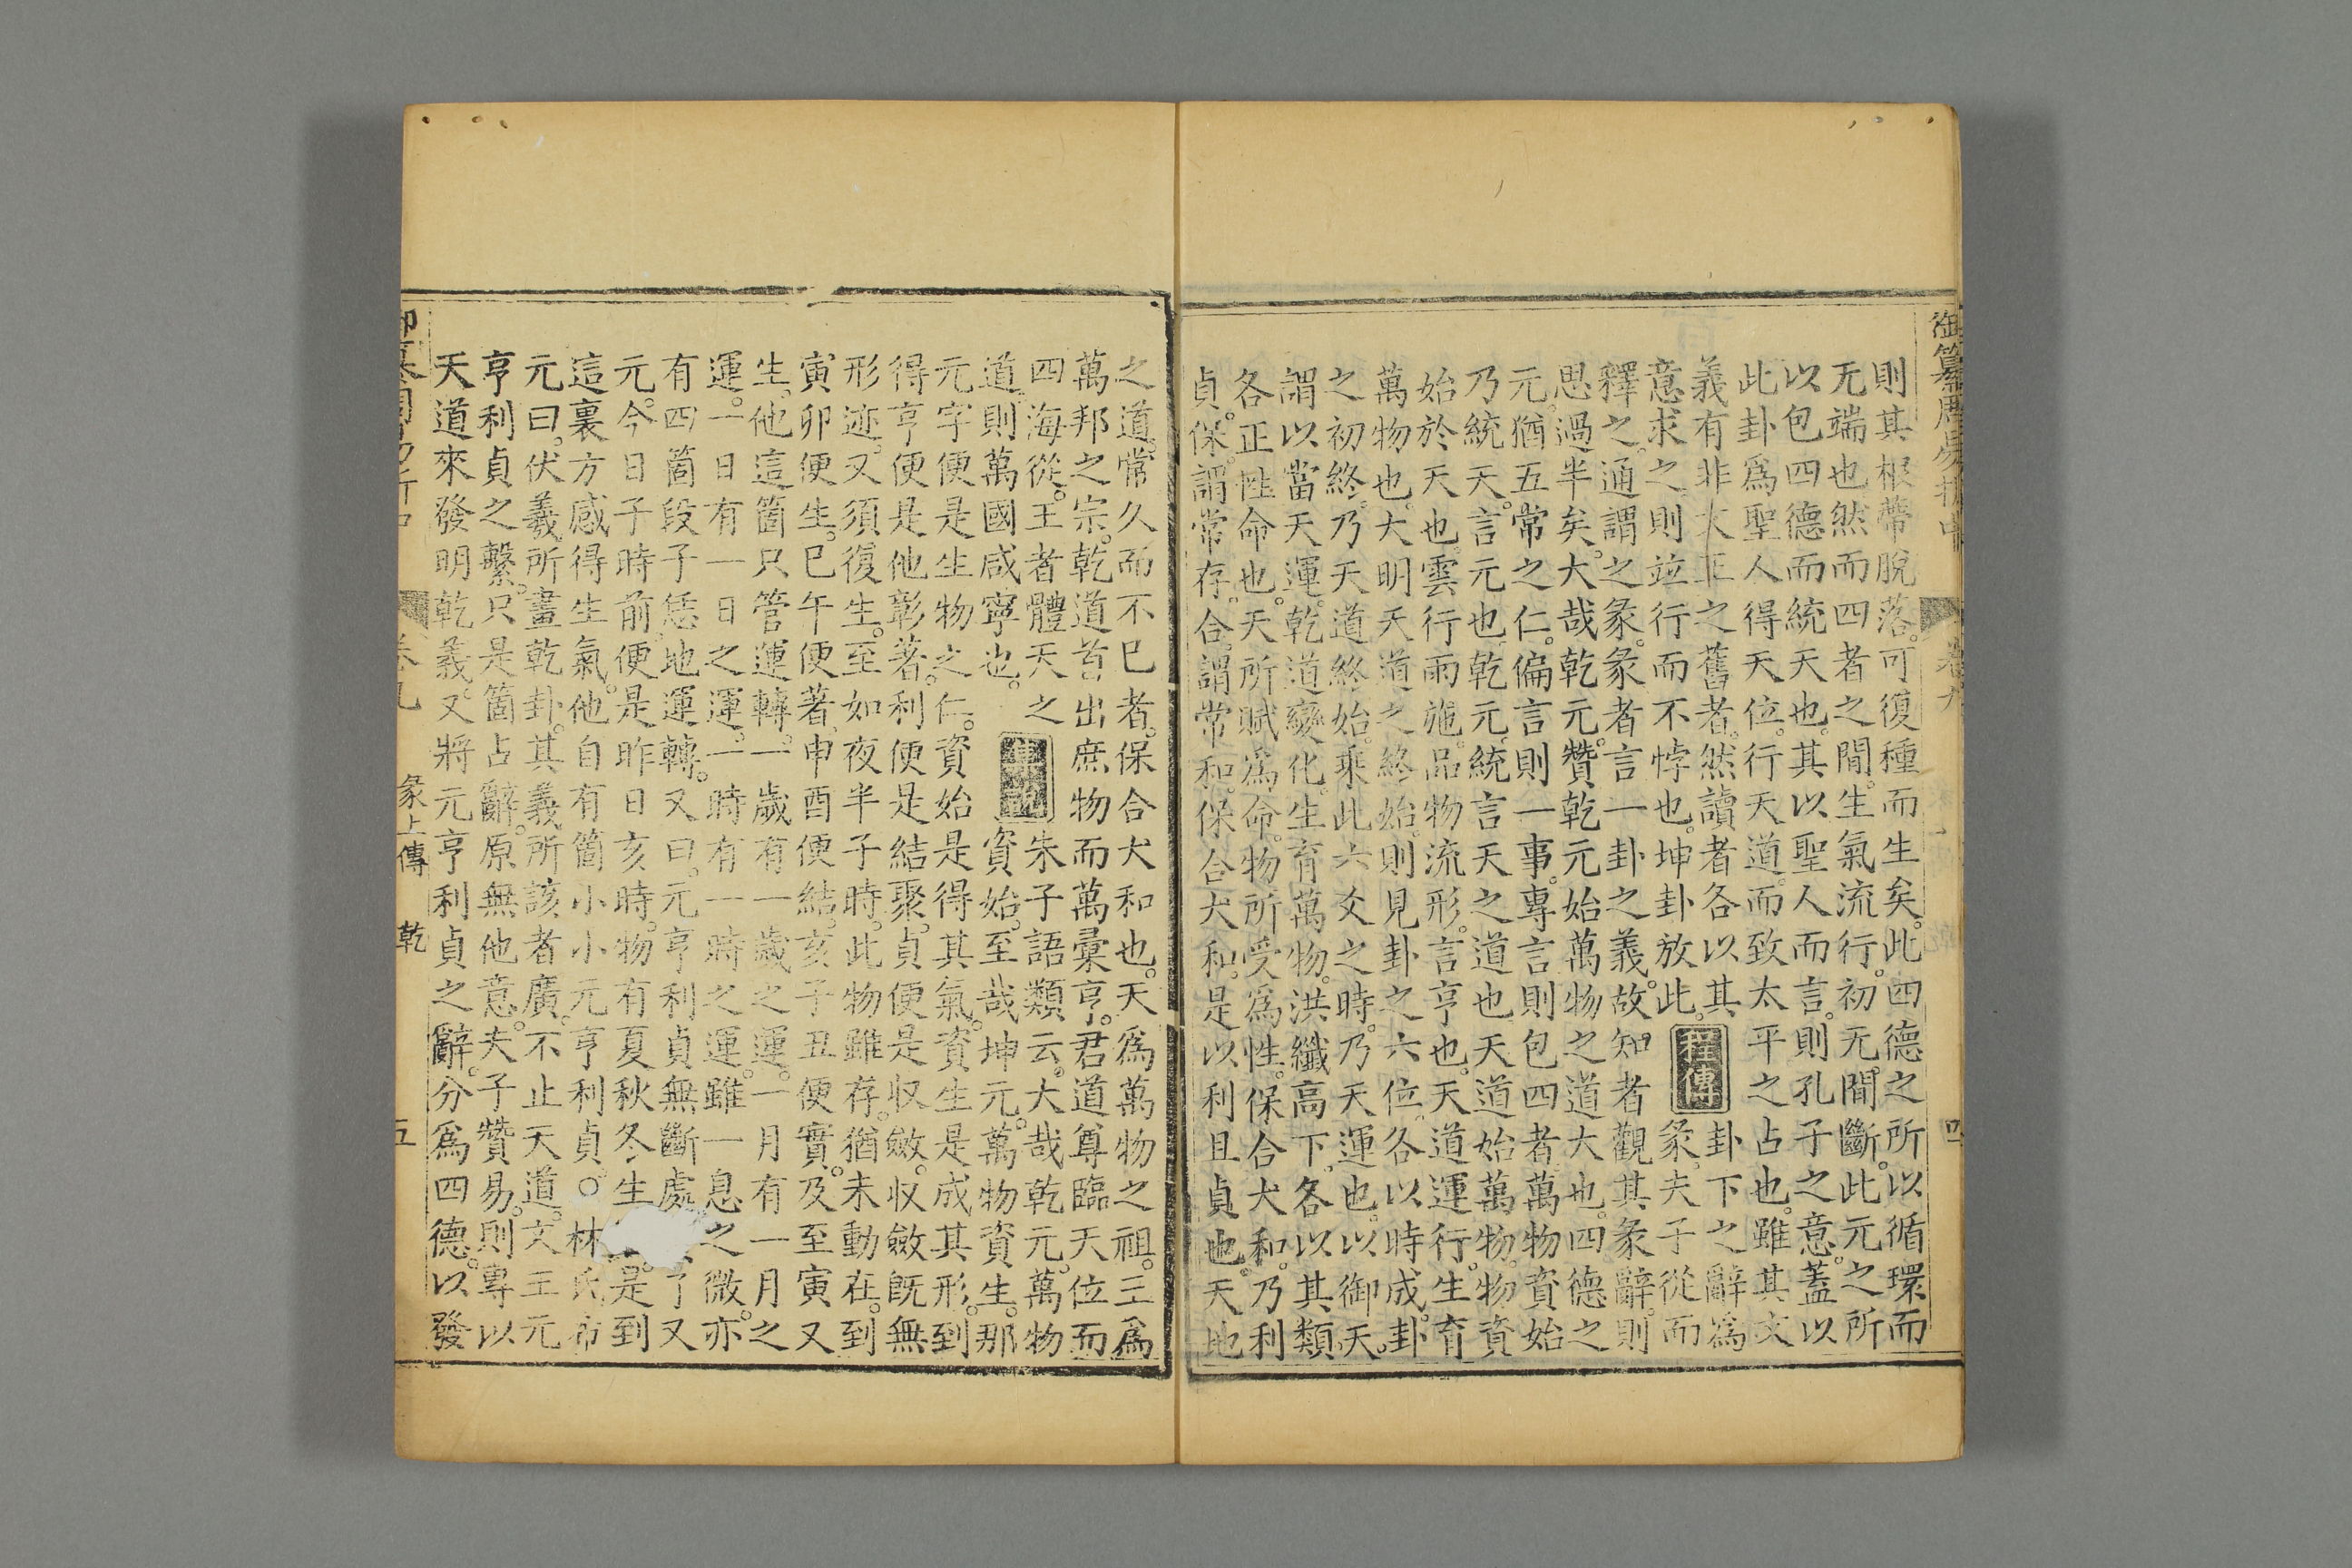 御纂周易折中
卷九
乾
四
則其根蔕脫落可復種而生矣此四德之所以循環而
无端也然而四者之間生氣流行初无間斷此元之所
以包四德而統天也其以聖人而言則孔子之意蓋以
此卦爲聖人得天位行天道而致太平之占也雖其文
義有非文王之舊者然讀者各以其
意求之則竝行而不悖也坤卦放此 程傳 卦下之辭爲
彖夫子從而
釋之通謂之彖彖者言一卦之義故知者觀其彖辭則
思過半矣大哉乾元贊乾元始萬物之道大也四德之
元猶五常之仁偏言則一事專言則包四者萬物資始
乃統天言元也乾元統言天之道也天道始萬物物資
始於天也雲行雨施品物流形言亨也天道運行生育
萬物也大明天道之終始則見卦之六位各以時成卦
之初終乃天道終始乘此六爻之時乃天運也以御天
謂以當天運乾道變化生育萬物洪纖高下各以其類
各正性命也天所賦爲命物所受爲性保合大和乃利
貞保謂常存合謂常和保合大和是以利且貞也天地
之道常久而不已者保合大和也天爲萬物之祖王爲
萬邦之宗乾道首出庶物而萬彙亨君道尊臨天位而
四海從王者體天之
道則萬國咸寧也 集說 朱子語類云大哉乾元萬物
資始至哉坤元萬物資生那
元字便是生物之仁資始是得其氣資生是成其形到
得亨便是他彰著利便是結聚貞便是收斂收斂旣無
形迹又須復生至如夜半子時此物雖存猶未動在到
寅卯便生巳午便著申酉便結亥子丑便實及至寅又
生他這箇只管運轉一歲有一歲之運一月有一月之
運一日有一日之運一時有一時之運雖一息之微亦
有四箇段子恁地運轉又曰元亨利貞無斷處了又
元今日子時前便是昨日亥時物有夏秋冬生是到
這裏方感得生氣他自有箇小小元亨利貞○林氏希
元曰伏羲所畫乾卦其義所該者廣不止天道文王元
亨利貞之繫只是箇占辭原無他意夫子贊易則專以
天道來發明乾義又將元亨利貞之辭分爲四德以發
御纂周易折中
卷九
彖上傳
乾
五